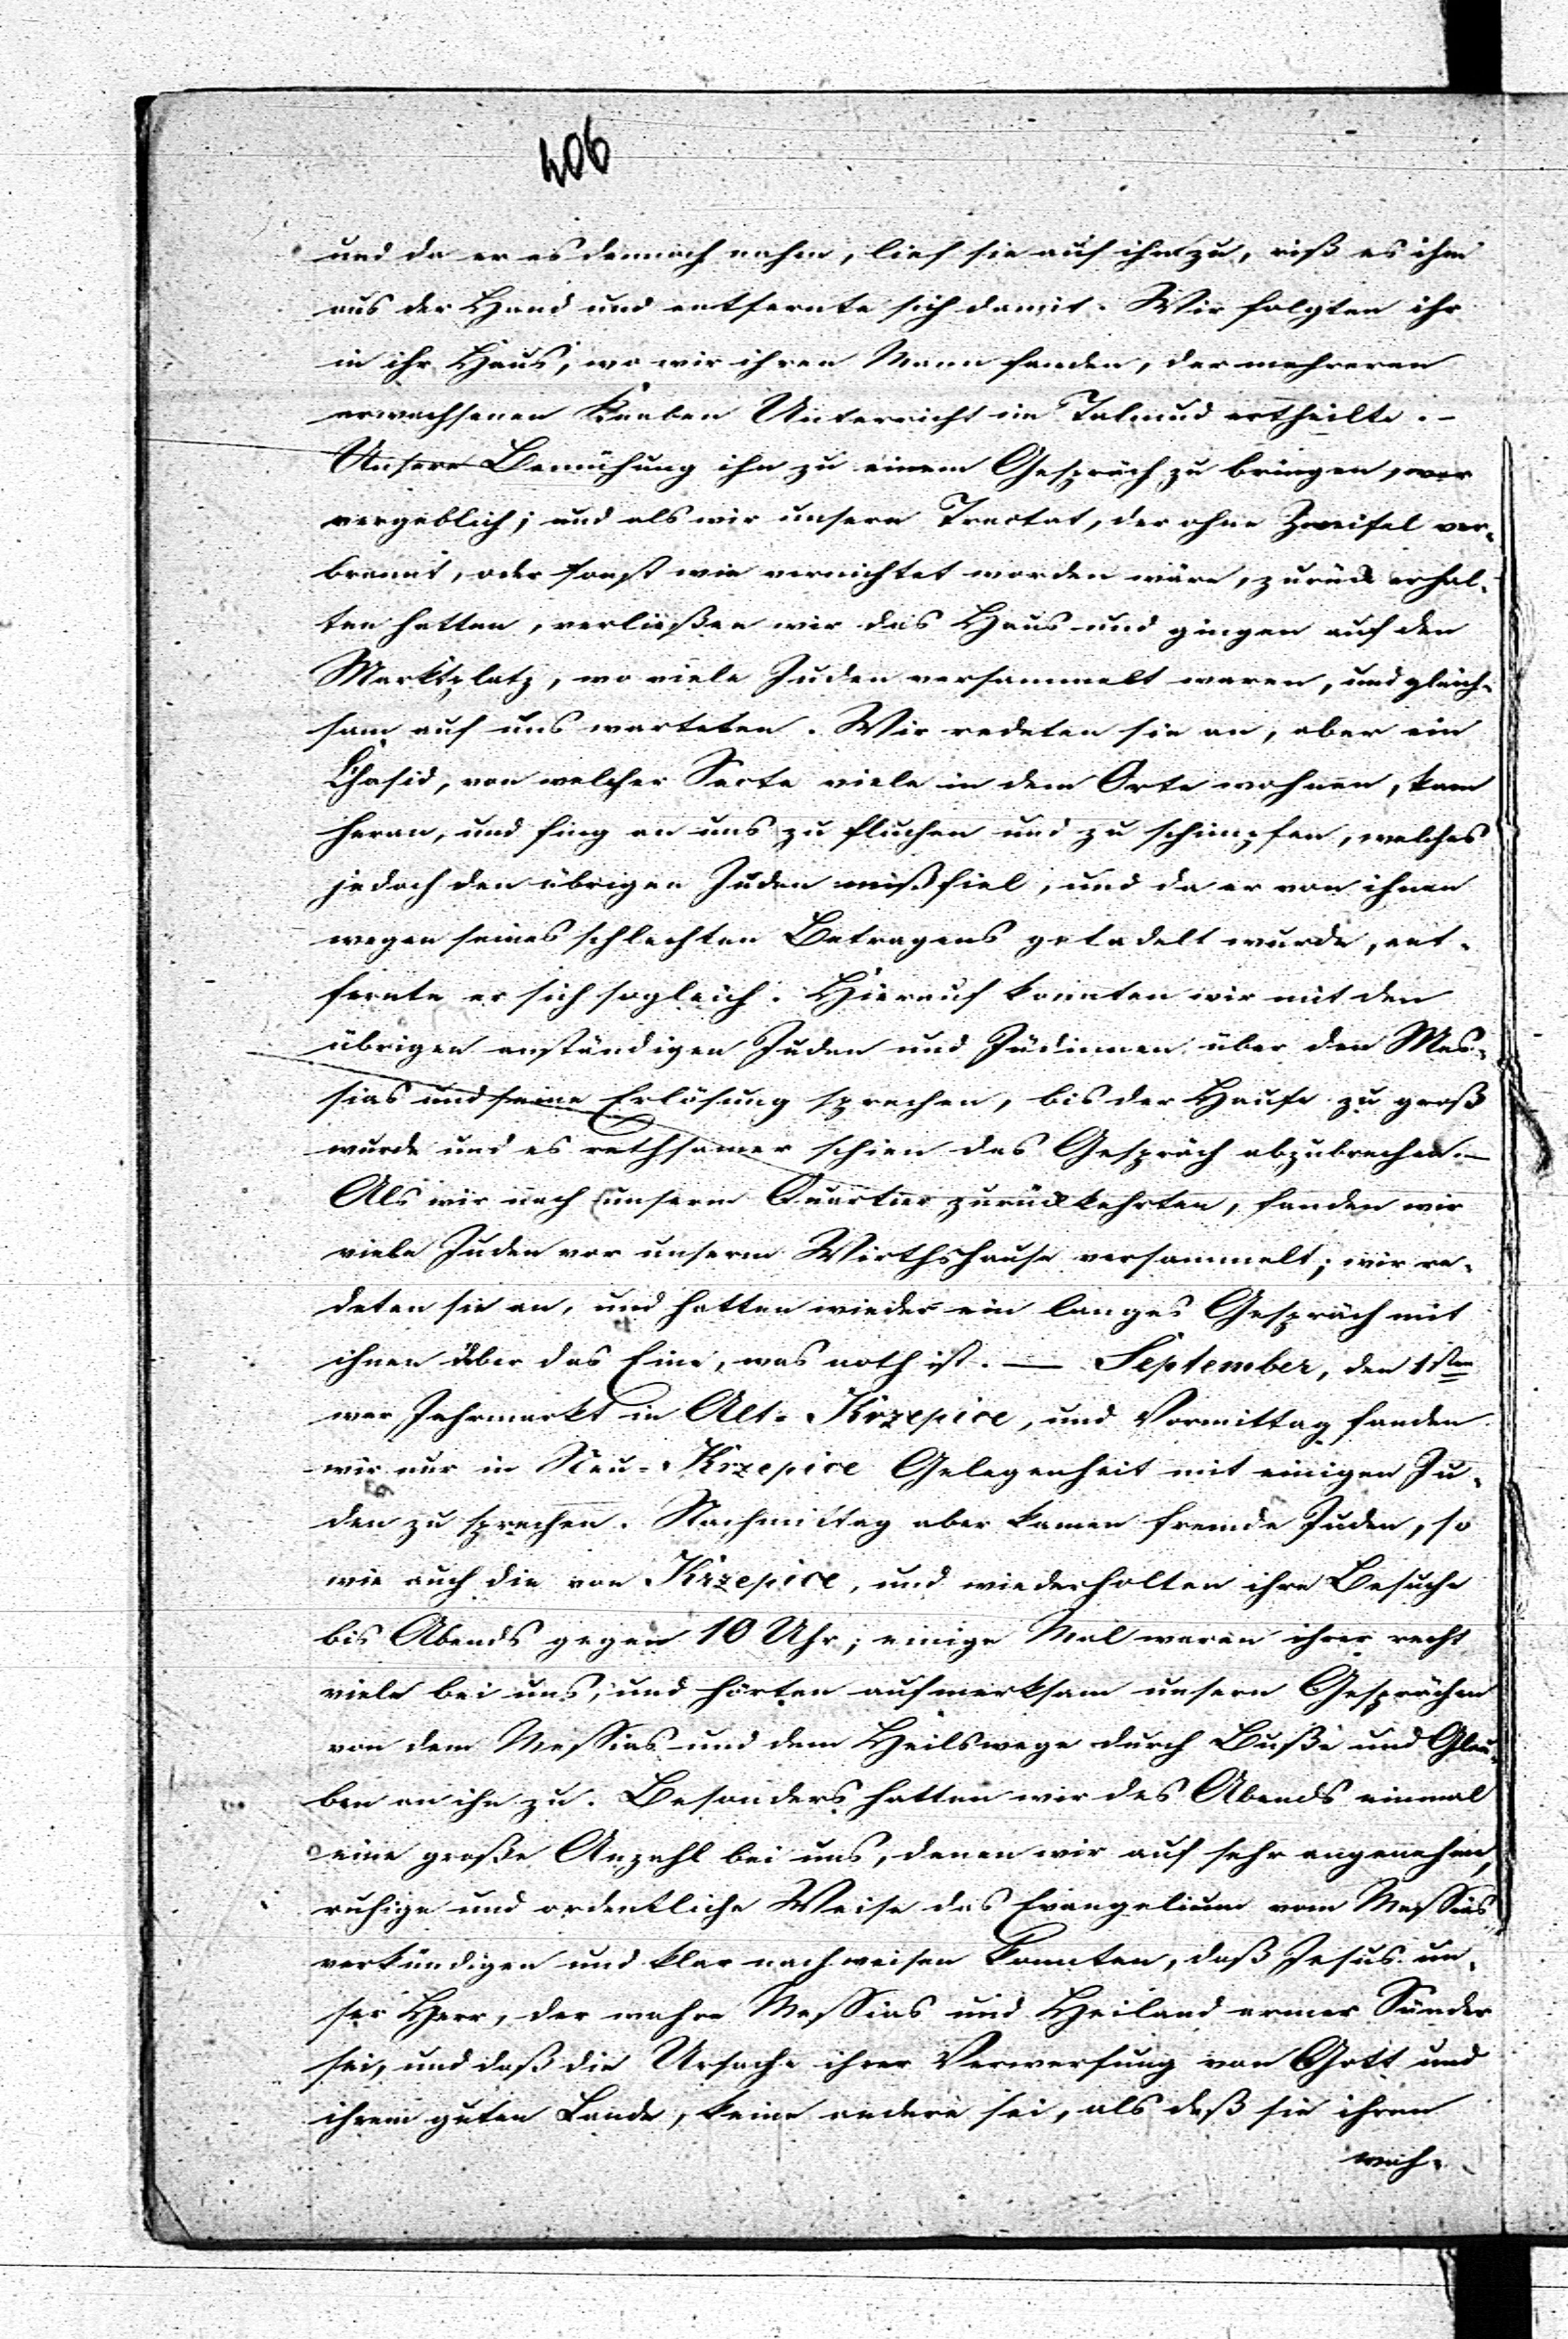 406
und da er es dennoch nahm, lief sie auf ihn zu, riß es ihm
aus der Hand und entfernte sich damit. Wir folgten ihr
in ihr Haus, wo wir ihren Mann fanden, der mehreren
erwachsenen Knaben Unterricht im Talmud ertheilte. –
Unsere Bemühung ihn zu einem Gespräch zu bringen, war
vergeblich; und als wir unsern Tractat, der ohne Zweifel ver-
brannt, oder sonst wie vernichtet worden wäre, zurück erhal-
ten hatten, verließen wir das Haus und gingen auf den
Marktplatz, wo viele Juden versammelt waren, und gleich-
sam auf uns warteten. Wir redeten sie an, aber ein
Chasid, von welcher Secte viele in dem Orte wohnen, kam
heran, und fing an uns zu fluchen und zu schimpfen, welches
jedoch den übrigen Juden mißfiel, und da er von ihnen
wegen seines schlechten Betragens getadelt wurde, ent-
fernte er sich sogleich. Hierauf konnten wir mit den
übrigen anständigen Juden und Jüdinnen über den Mes-
sias und seine Erlösung sprechen, bis der Haufe zu groß
wurde und es rathsamer schien das Gespräch abzubrechen. –
Als wir nach unserm Quartier zurückkehrten, fanden wir
viele Juden vor unserm Wirthshause versammelt; wir re-
deten sie an, und hatten wieder ein langes Gespräch mit
ihnen über das Eine, was noth ist. — September, den 1sten
war Jahrmarkt in Alt-Krzepice, und Vormittag fanden
wir nur in Neu-Krzepice Gelegenheit mit einigen Ju-
den zu sprechen. Nachmittag aber kamen fremde Juden, so
wie auch die von Krzepice, und wiederholten ihre Besuche
bis Abends gegen 10 Uhr; einige Mal waren ihrer recht
viele bei uns, und hörten aufmerksam unsern Gesprächen
von dem Messias und dem Heilswege durch Buße und Glau-
ben an ihn zu. Besonders hatten wir des Abends einmal
eine große Anzahl bei uns, denen wir auf sehr angenehme,
ruhige und ordentliche Weise das Evangelium vom Messias
verkündigen und klar nachweisen konnten, daß Jesus un-
ser Herr, der wahre Messias und Heiland armer Sünder
sei, und daß die Ursache ihrer Verwerfung von Gott und
ihrem guten Lande, keine andere sei, als daß sie ihren
wah-